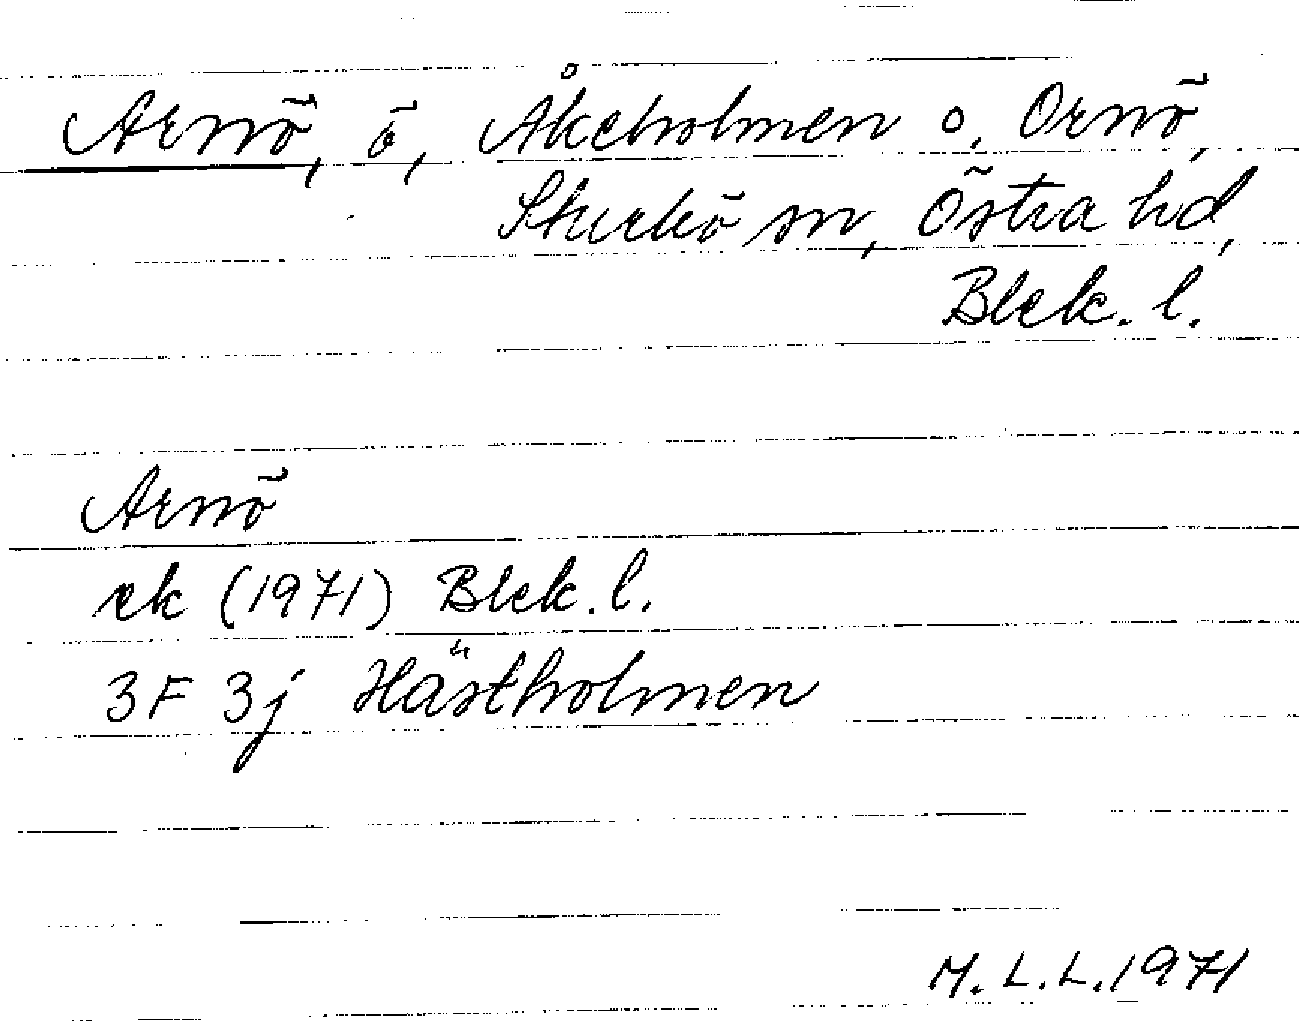 Arnö, ö, Åkeholmen o. Ornö,
Sturkö sn, Östra hd,
Blek. l.
Arnö
ek (1971) Blek. l.
3F 3j Hästholmen
M.L.L. 1971